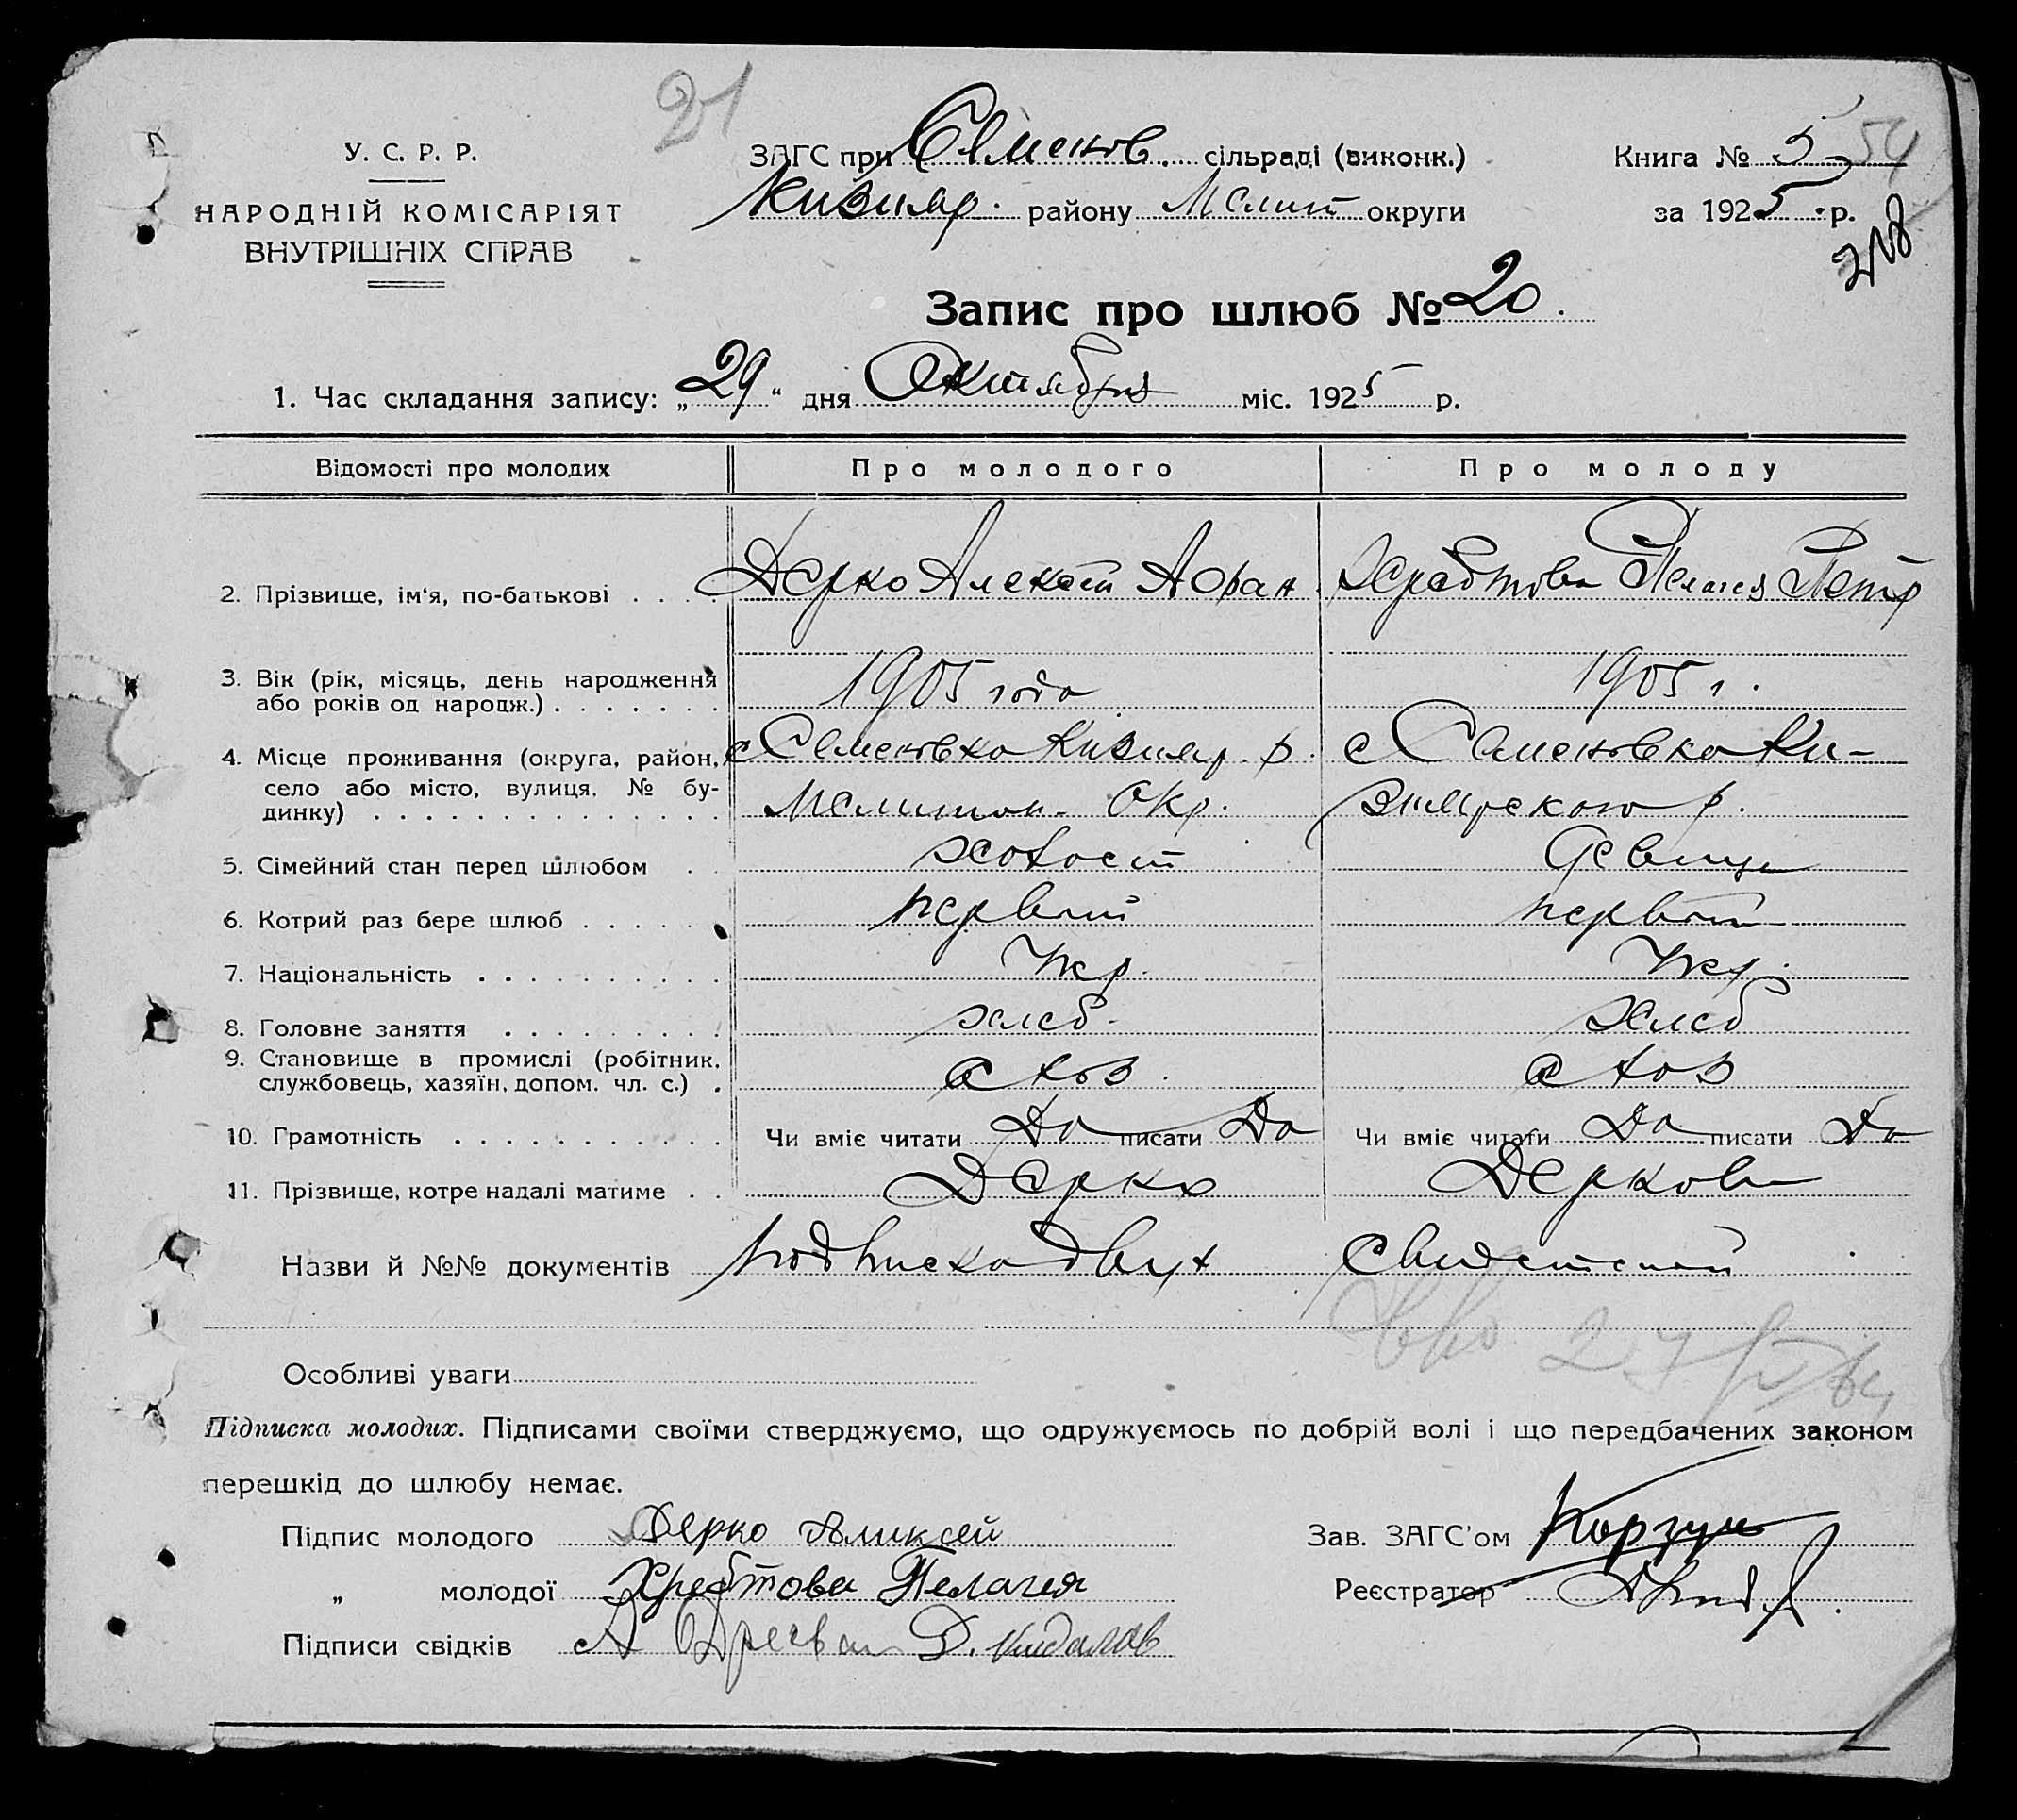 21
У. С. Р. Р.
НАРОДНІЙ КОМІСАРІЯТ
ВНУТРІШНІХ СПРАВ
ЗАГС при Семенов. сільраді (виконк.)
Кизияр. району Мелит округи
Книга № 5 54
за 1925 р.
Запис про шлюб № 20.
1. Час складання запису: „29“ дня Октября міс. 1925 р.
Відомості про молодих Про молодого Про молоду
2. Прізвище, ім'я, по-батькові . . . . Дерко Алексей Афан. Хребтова Пелагея Петр
3. Вік (рік, місяць, день народження
або років од народж.) . . . . . . . 1905 года 1905 г.
4. Місце проживання (округа, район, с Семеновка Кизияр. р. с Семеновка Ки-
село або місто, вулиця, № бу-
динку) . . . . . . . . . . . . . . Мелитоп. Окр. зиярского р.
5. Сімейний стан перед шлюбом . . холост девица
6. Котрий раз бере шлюб . . . . . . первый первый
7. Національність . . . . . . . . . . Укр. Укр.
8. Головне заняття . . . . . . . . . хлеб. хлеб
9. Становище в промислі (робітник,
службовець, хазяїн, допом. чл. с.) .
10. Грамотність . . . . . . . . . . . Чи вміє читати Да писати Да Чи вміє читати Да писати Да
11. Прізвище, котре надалі матиме . . Дерко Деркова
Назви й №№ документів подписка двух свидетелей
Особливі уваги
Підписка молодих. Підписами своїми стверджуємо, що одружуємось по добрій волі і що передбачених законом
перешкід до шлюбу немає.
Підпис молодого Дерко Аликсей
„ молодої Хребтова Пелагея
Підписи свідків
Зав. ЗАГС'ом Корзун
Реєстратор